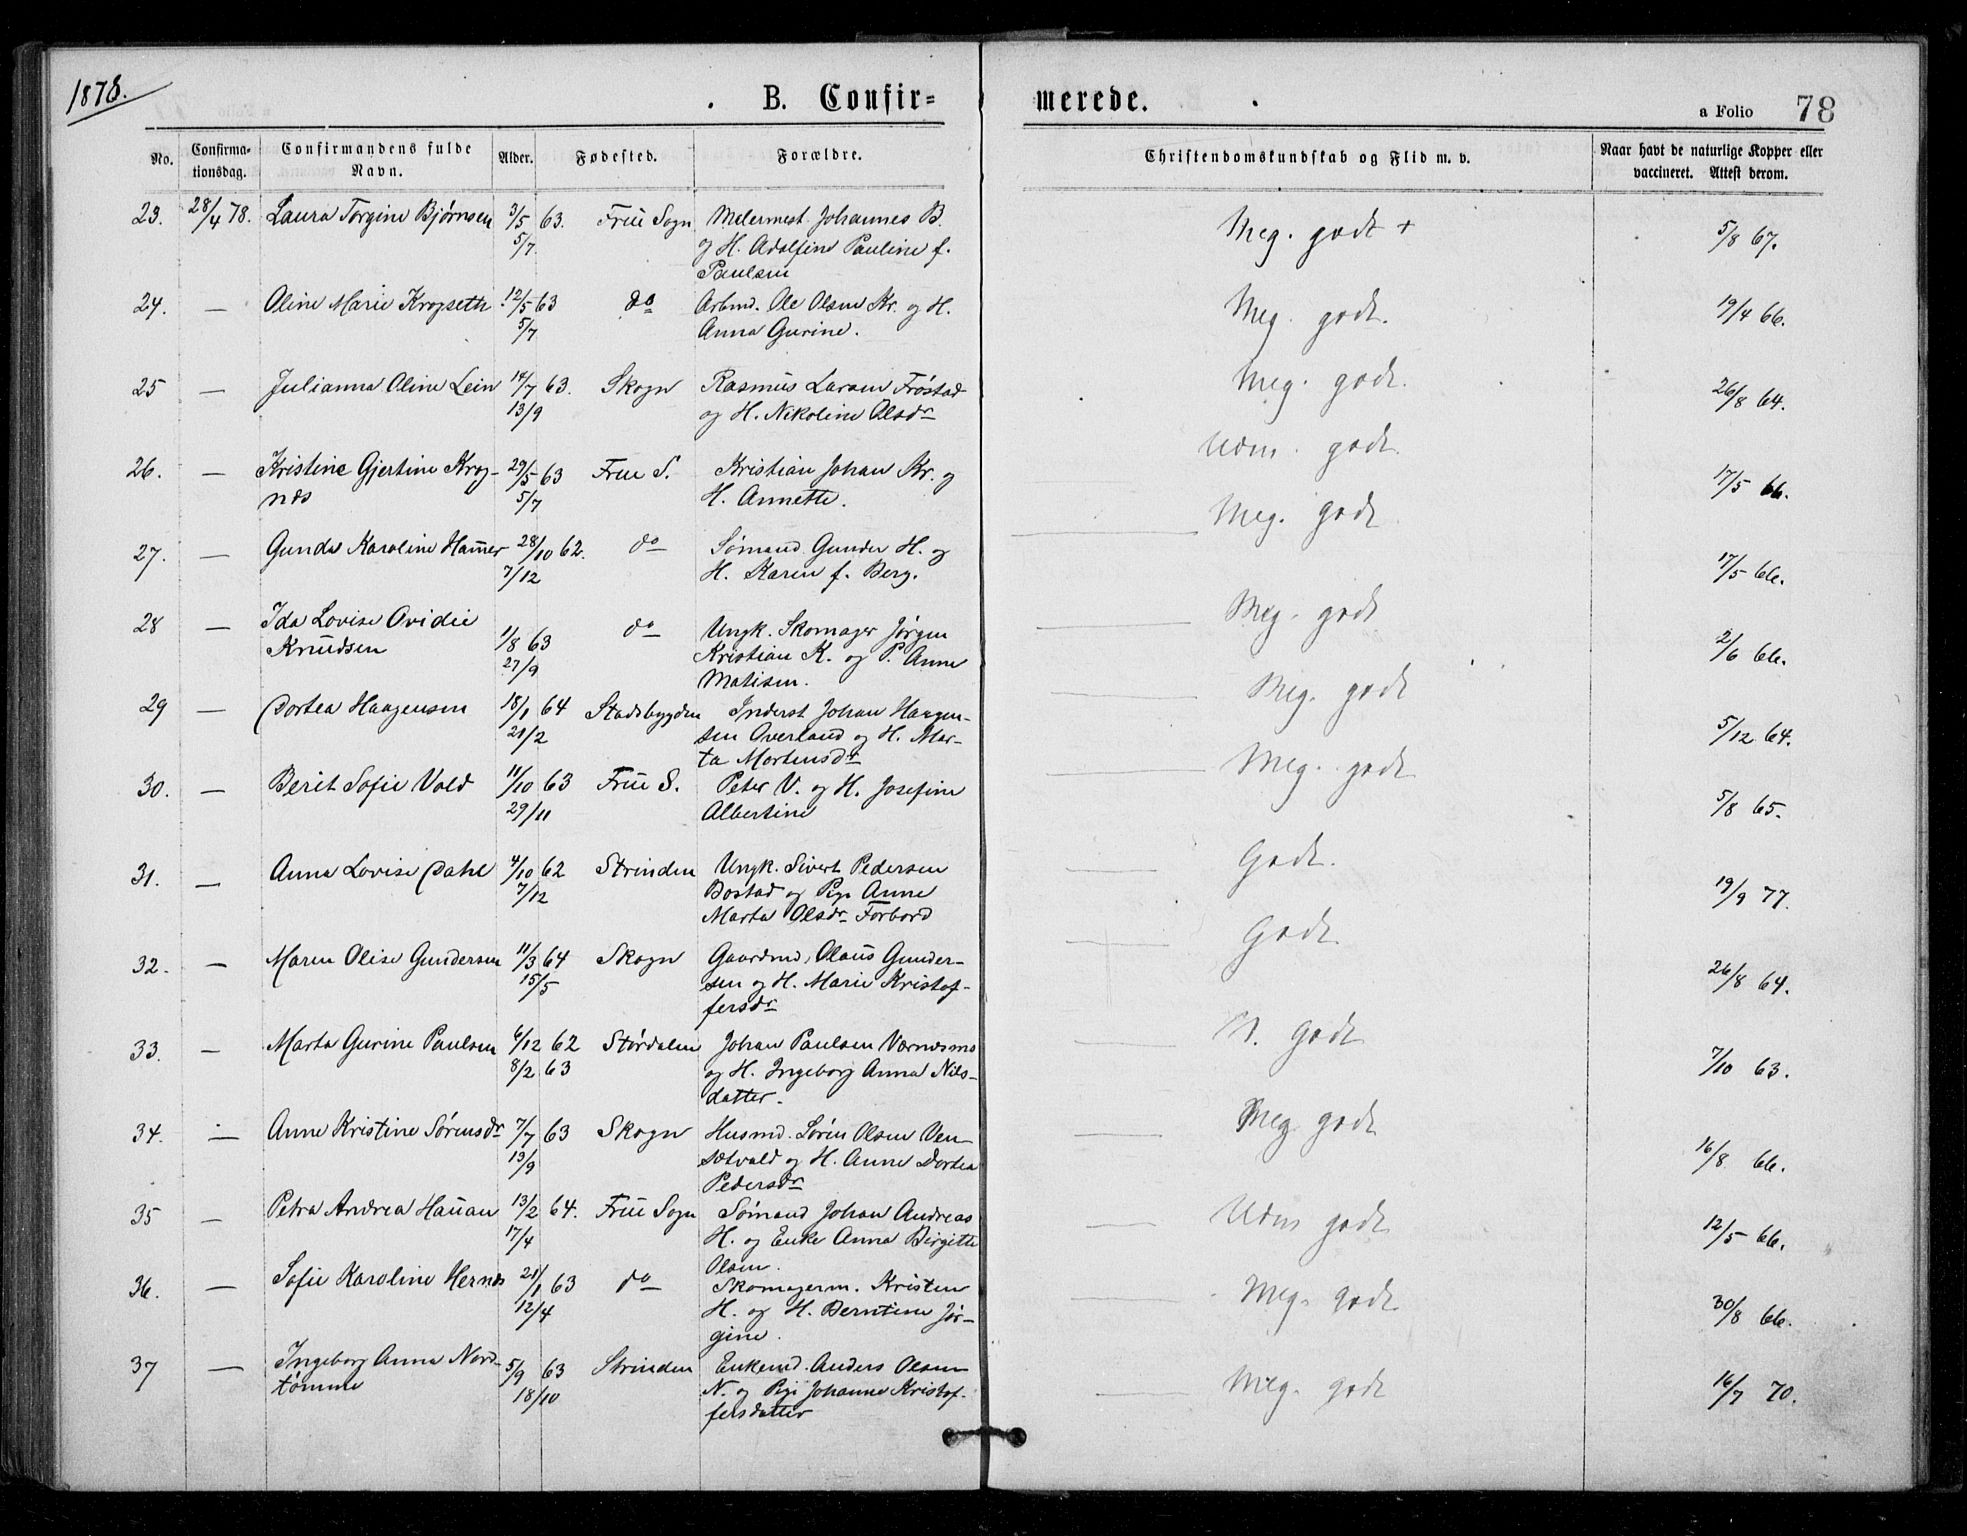 1878.
B. Confir=
merede.
a Folio 78
No. Confirma-tionsdag. Confirmandens fulde Navn. Alder. Fødested. Forældre. Christendomskundskab og Flid m. v. Naar havt de naturlige Kopper eller vaccineret. Attest derom.
23. 28/4 78. Laura Torgine Bjørnsen 3/5 63. Frue Sogn Malermest. Johannes B. Meg. godt + 5/8 67.
5/7 og H. Adolfine Pauline f.
Paulsen
24. — Oline Marie Krogseth 12/5 63 do Arbmd. Ole Olsen Kr. og H. Meg. godt. 19/4 66.
5/7 Anna Gurine.
25 — Julianna Oline Lein 14/7 63. Skogn Rasmus Larsen Frøstad Meg. godt. 26/8 64.
13/9 og H. Nikoline Olsdr
26. — Kristine Gjertine Krog- 29/5 63 Frue S. Kristian Johan Kr. og Udm. godt. 17/5 66.
næs 5/7 H. Annette.
27. — Gunda Karoline Hamer 28/10 62. do Sømand Gunder H. og Meg. godt 17/5 66.
7/12 H. Karen f. Berg.
28 — Ida Lovise Ovidie
Knudsen 1/8 63 do Ungk. Skomager Jørgen Meg. godt 2/6 66.
27/9 Kristian K. og P. Anne
Matisen.
29 — Dortea Haagensen 18/1 64 Stadsbygden Inderst Johan Haagen- Meg. godt 5/12 64.
21/2 sen Overland og H. Mar-
ta Mortensdr
30. — Berit Sofie Vold 11/10 63 Frue S. Peter V. og H. Josefine Meg. godt 5/8 65.
29/11 Albertine
31. — Anna Lovise Dahl 4/10 62 Strinden Ungk. Sivert Pedersen Godt. 19/9 77.
7/12 Bostad og Pige Anne
Marta Olsdr Forbord
32. — Maren Olise Gundersen 11/3 64 Skogn Gaardmd. Olaus Gunder- Godt. 26/8 64.
15/5 sen og H. Marie Kristof-
fersdr
33. — Marta Gurine Paulsen 6/12 62 Størdalen Johan Paulsen Værnesmo N. godt 7/10 63.
8/2 63 og H. Ingeborg Anna Nils-
datter.
34. — Anne Kristine Sörensdr 7/7 63 Skogn Husmd. Sören Olsen Ven- Meg godt 16/8 66.
13/9 sætvald og H. Anne Dortea
Pedersdr
35 — Petra Andrea Hauan 13/2 64. Frue Sogn Sømand Johan Andreas Udm godt 12/5 66.
17/4 H. og Enke Anna Birgitte
Olsen.
36. — Sofie Karoline Hernæs 21/1 63 do Skomagerm. Kristen Meg. godt 30/8 66.
12/4 H. og H. Berntine Jør-
gine.
37 — Ingeborg Anna Nord- 5/9 63 Strinden Enkemd. Anders Olsen Meg. godt 16/7 70.
tømme 18/10 N. og Pige Johanne Kristof-
fersdatter